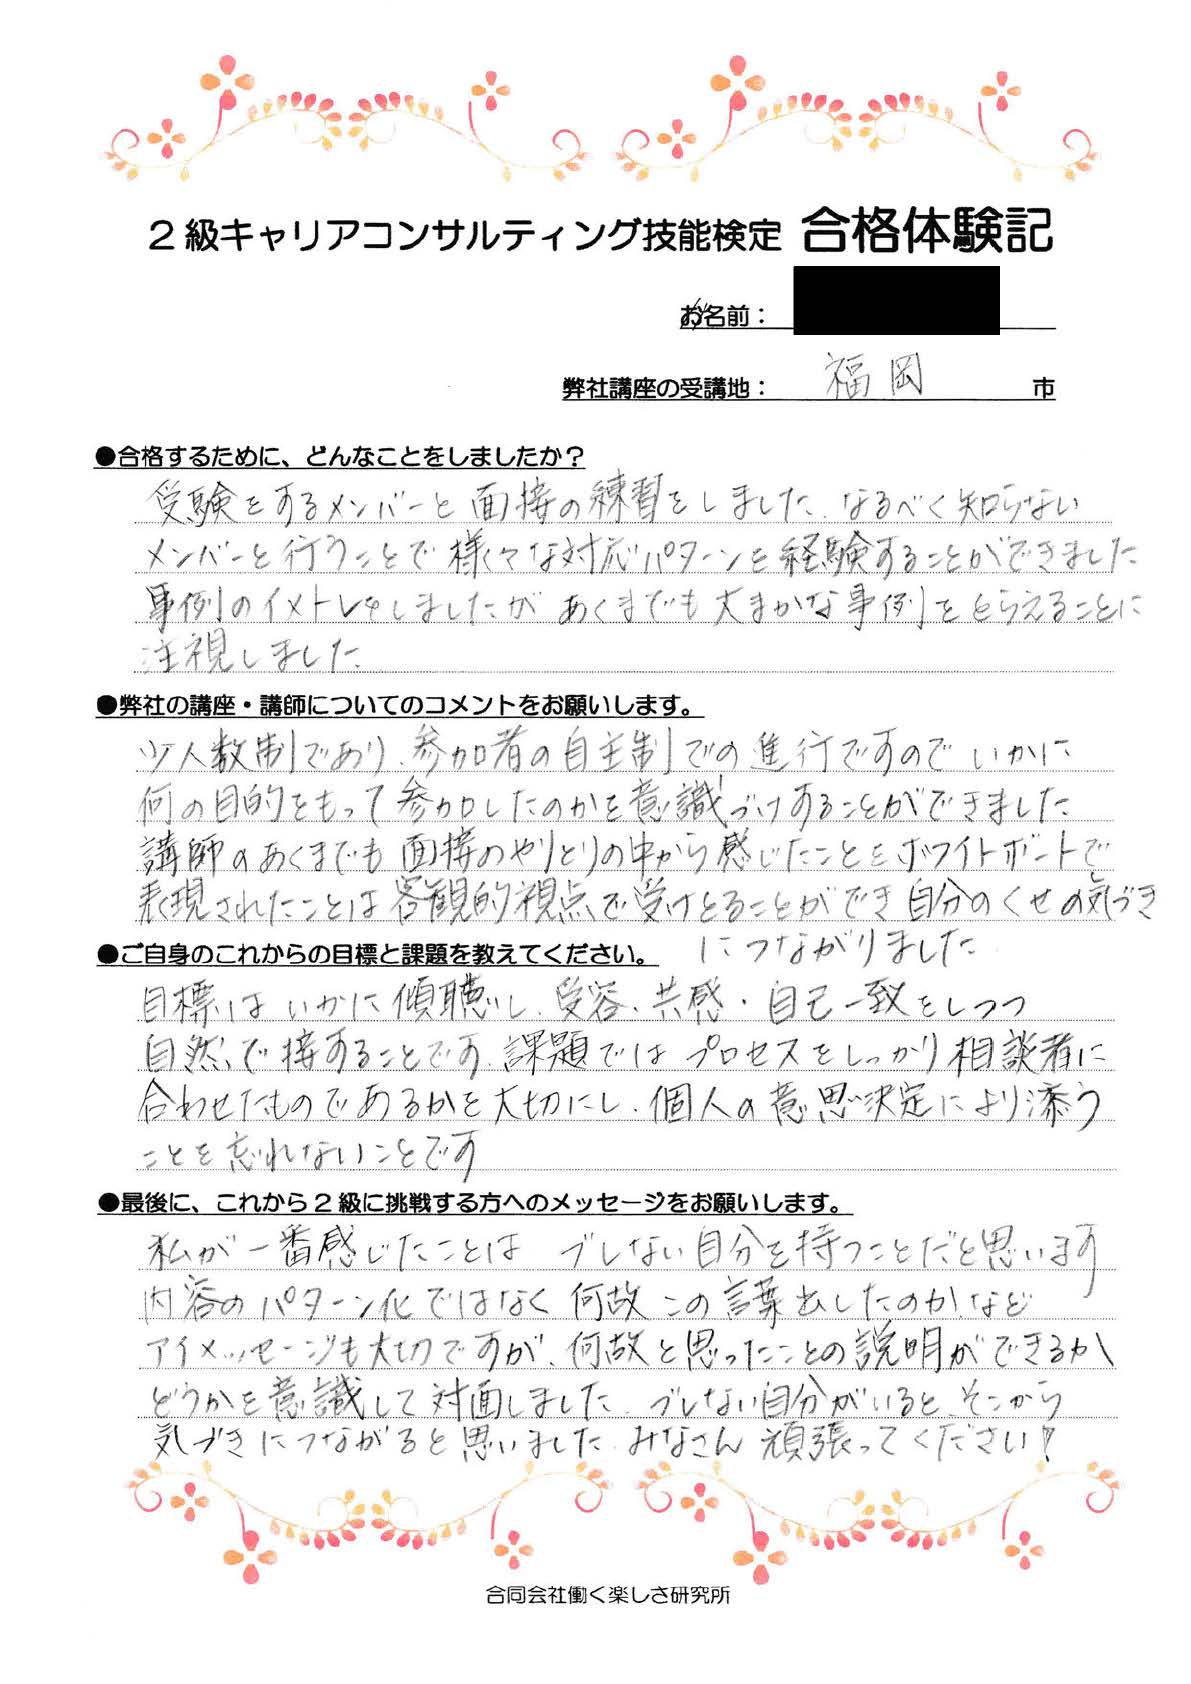 2級キャリアコンサルティング技能検定 合格体験記
お名前：
弊社講座の受講地： 福岡 市
●合格するために、どんなことをしましたか？
受験をするメンバーと面接の練習をしました、なるべく知らない
メンバーと行うことで様々な対応パターンを経験することができました
事例のイメトレをしましたが あくまでも大まかな事例をとらえることに
注視しました
●弊社の講座・講師についてのコメントをお願いします。
少人数制であり、参加者の自主制での進行ですので いかに
何の目的をもって参加したのかを意識づけすることができました
講師のあくまでも面接のやりとりの中から感じたことをホワイトボートで
表現されたことは客観的視点で受けとることができ自分のくせの気づき
につながりました
●ご自身のこれからの目標と課題を教えてください。
目標は いかに傾聴し、受容、共感・自己一致をしつつ
自然で接することです、課題では プロセスをしっかり相談者に
合わせたものであるかを大切にし、個人の意思決定により添う
ことを忘れないことです
●最後に、これから2級に挑戦する方へのメッセージをお願いします。
私が一番感じたことは ブレない自分を持つことだと思います
内容のパターン化ではなく 何故この言葉を出したのか、など
アイメッセージも大切ですが、何故と思ったことの説明ができるか
どうかを意識して対面しました、ブレない自分がいると、そこから
気づきにつながると思いました、みなさん頑張ってください！
合同会社働く楽しさ研究所